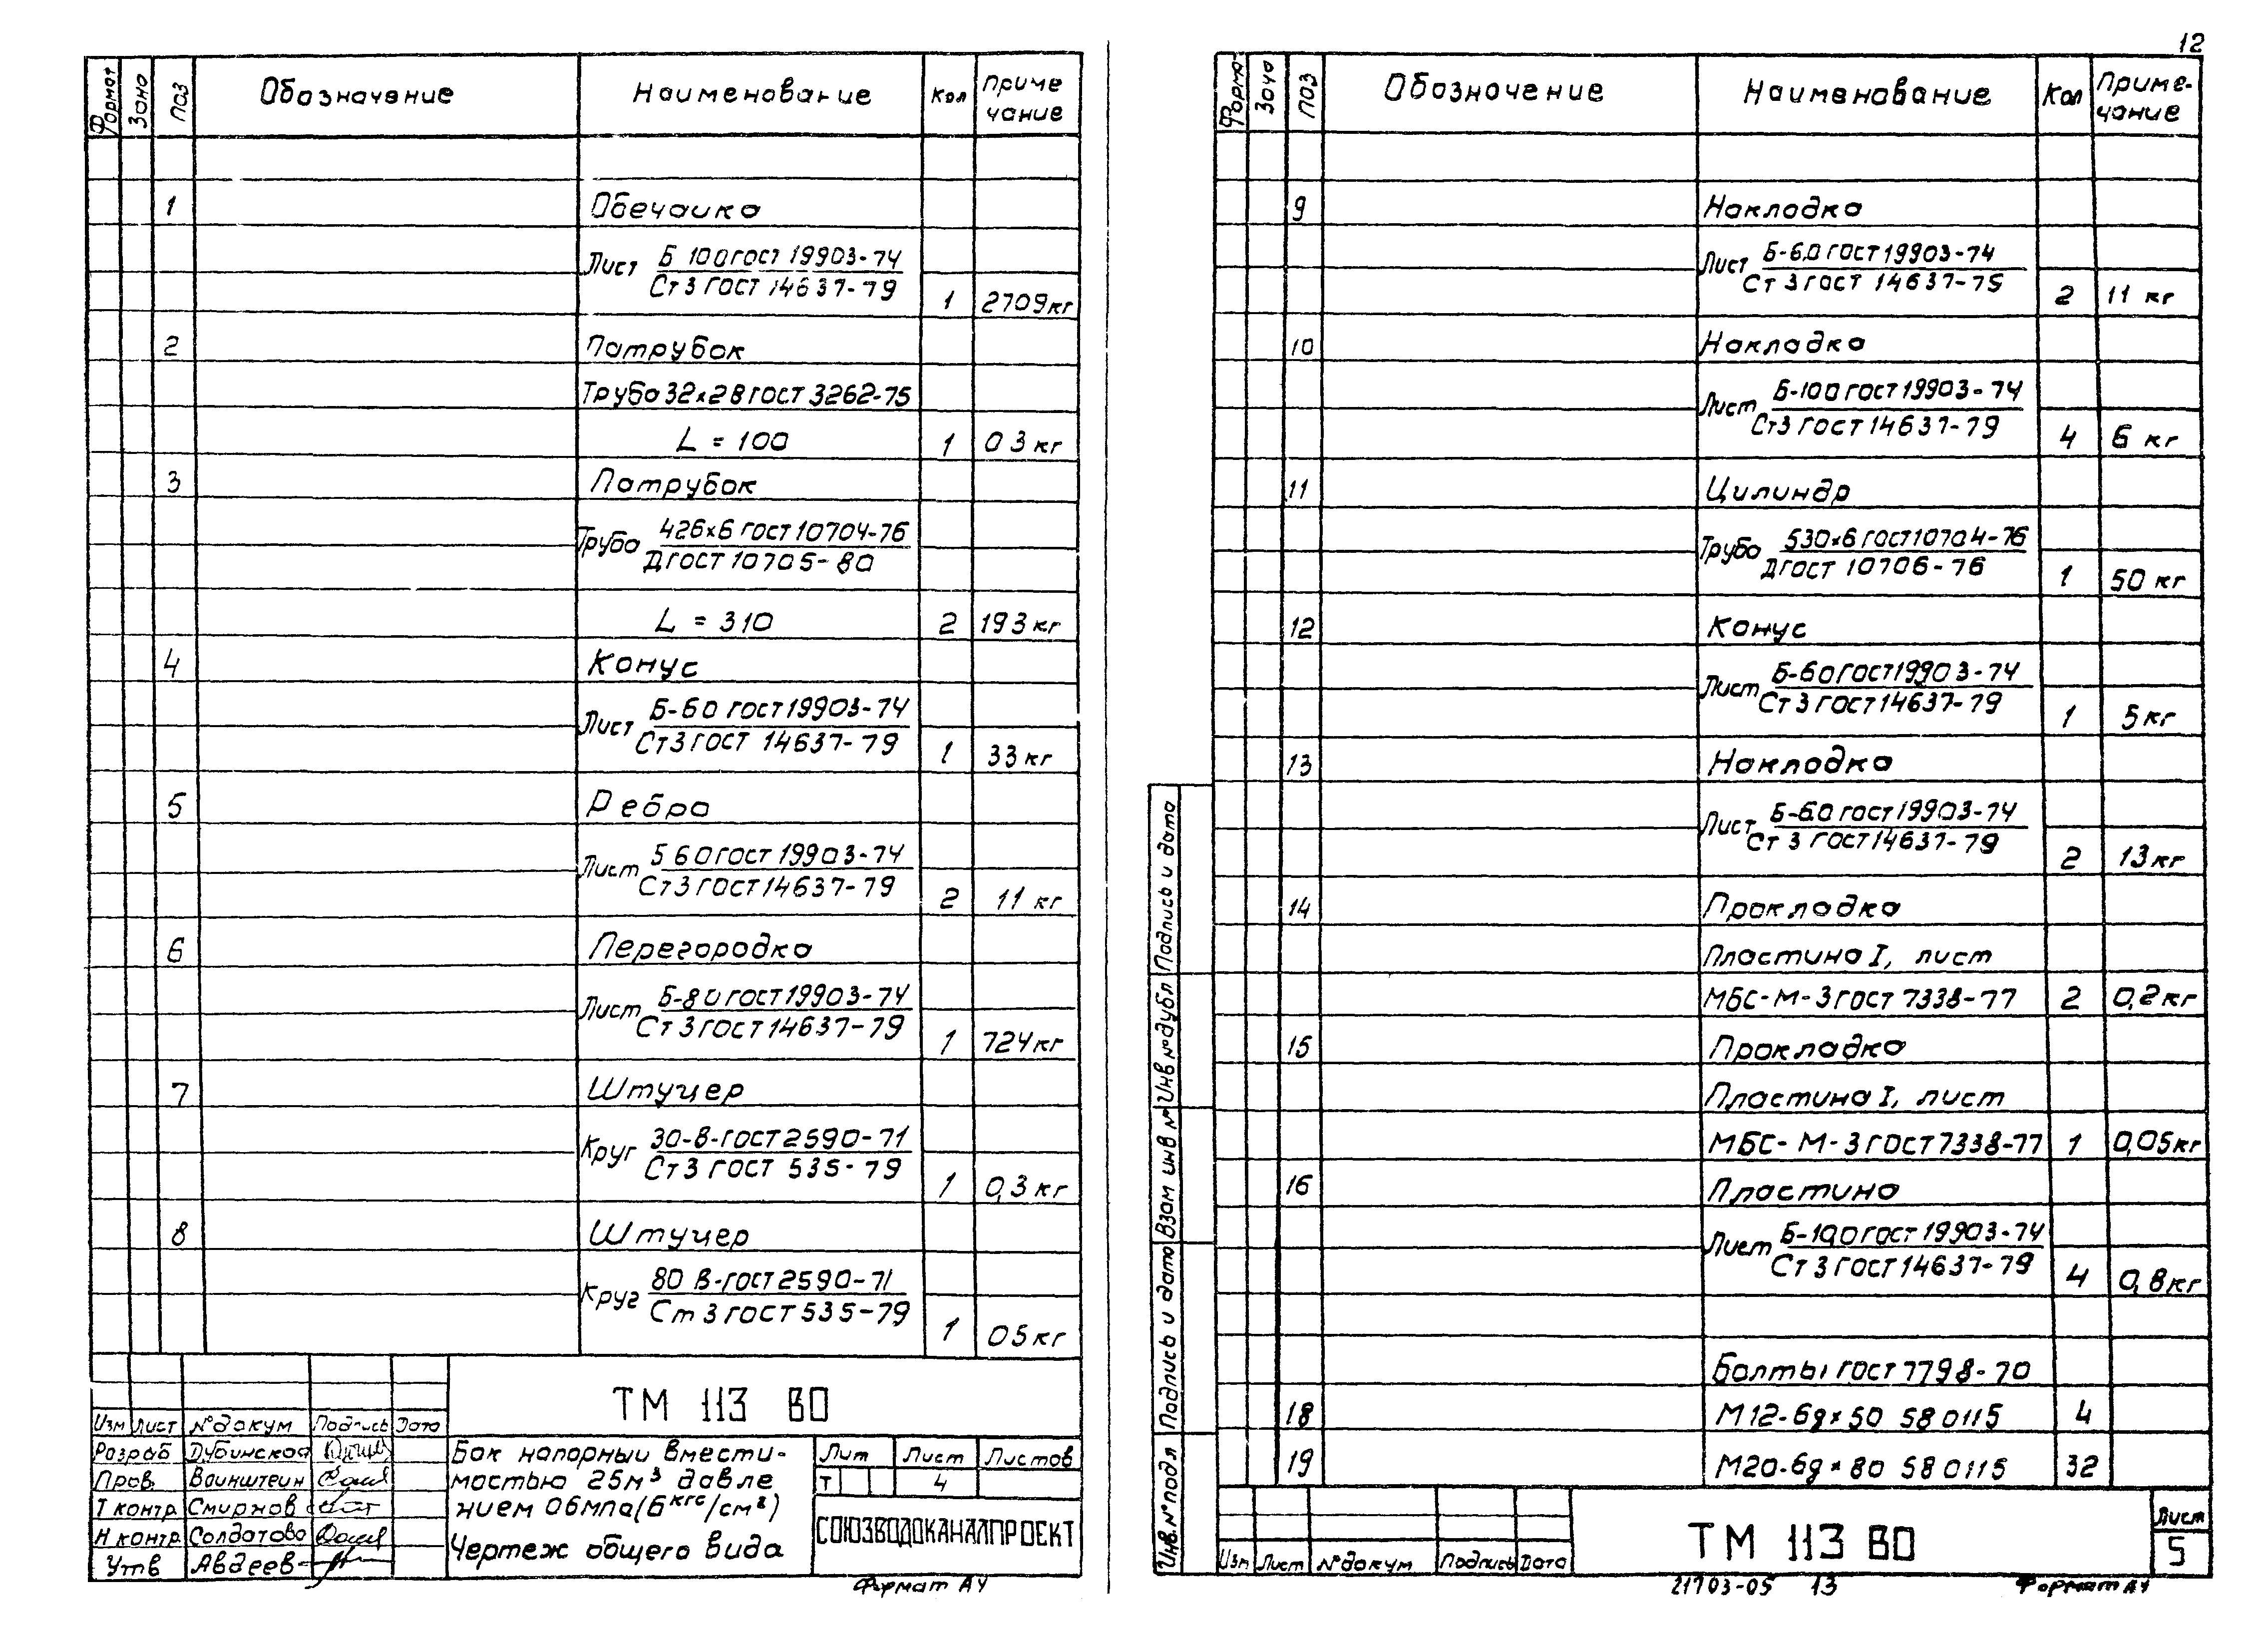 12
Формат Зона Поз Обозначение Наименование Кол Приме
чание
1 Обечаика
Лист Б 100 ГОСТ 19903-74
Ст 3 ГОСТ 14637-79
1 2709 кг
2 Патрубок
Труба 32×2 8 ГОСТ 3262-75
L = 100 1 0 3 кг
3 Патрубок
Труба 426×6 ГОСТ 10704-76
Д ГОСТ 10705-80
L = 310 2 19 3 кг
4 Конус
Лист Б-6 0 ГОСТ 19903-74
Ст 3 ГОСТ 14637-79
1 33 кг
5 Ребро
Лист Б 6 0 ГОСТ 19903-74
Ст 3 ГОСТ 14637-79
2 11 кг
6 Перегородка
Лист Б-8 0 ГОСТ 19903-74
Ст 3 ГОСТ 14637-79
1 724 кг
7 Штуцер
Круг 30-В-ГОСТ 2590-71
Ст 3 ГОСТ 535-79
1 0,3 кг
8 Штуцер
Круг 80 В-ГОСТ 2590-71
Ст 3 ГОСТ 535-79
1 0 5 кг
ТМ 113 ВО
Изм Лист № докум Подпись Дата
Разраб Дубинская
Пров. Ваинштеин
Т контр Смирнов
Н контр Солдатова
Утв Авдеев
Бак напорныи вмести-
мостью 25м³ давле
нием 0 6 мпа (6 кгс/см²)
Чертеж общего вида
Лит Лист Листов
Т 4
СОЮЗВОДОКАНАЛПРОЕКТ
Формат А4
Форма- Зона Поз Обозначение Наименование Кол Приме-
чание
9 Накладка
Лист Б-6.0 ГОСТ 19903-74
Ст 3 ГОСТ 14637-75
2 11 кг
10 Накладка
Лист Б-10 0 ГОСТ 19903-74
Ст 3 ГОСТ 14637-79
4 6 кг
11 Цилиндр
Труба 530×6 ГОСТ 10704-76
Д ГОСТ 10706-76
1 50 кг
12 Конус
Лист Б-6 0 ГОСТ 19903-74
Ст 3 ГОСТ 14637-79
1 5 кг
13 Накладка
Лист Б-6.0 ГОСТ 19903-74
Ст 3 ГОСТ 14637-79
2 13 кг
14 Прокладка
Пластина I, лист
МБС-М-3 ГОСТ 7338-77 2 0,2 кг
15 Прокладка
Пластина I, лист
МБС-М-3 ГОСТ 7338-77 1 0,05 кг
16 Пластина
Лист Б-10,0 ГОСТ 19903-74
Ст 3 ГОСТ 14637-79
4 0,8 кг
Болты ГОСТ 7798-70
18 М12-6g×50 58 0115 4
19 М20-6g×80 58 0115 32
Инв. № подл Подпись и дата Взам инв № Инв № дубл Подпись и дата
Изм Лист № докум Подпись Дата
ТМ 113 ВО
Лист
5
21703-05 13 Формат А4